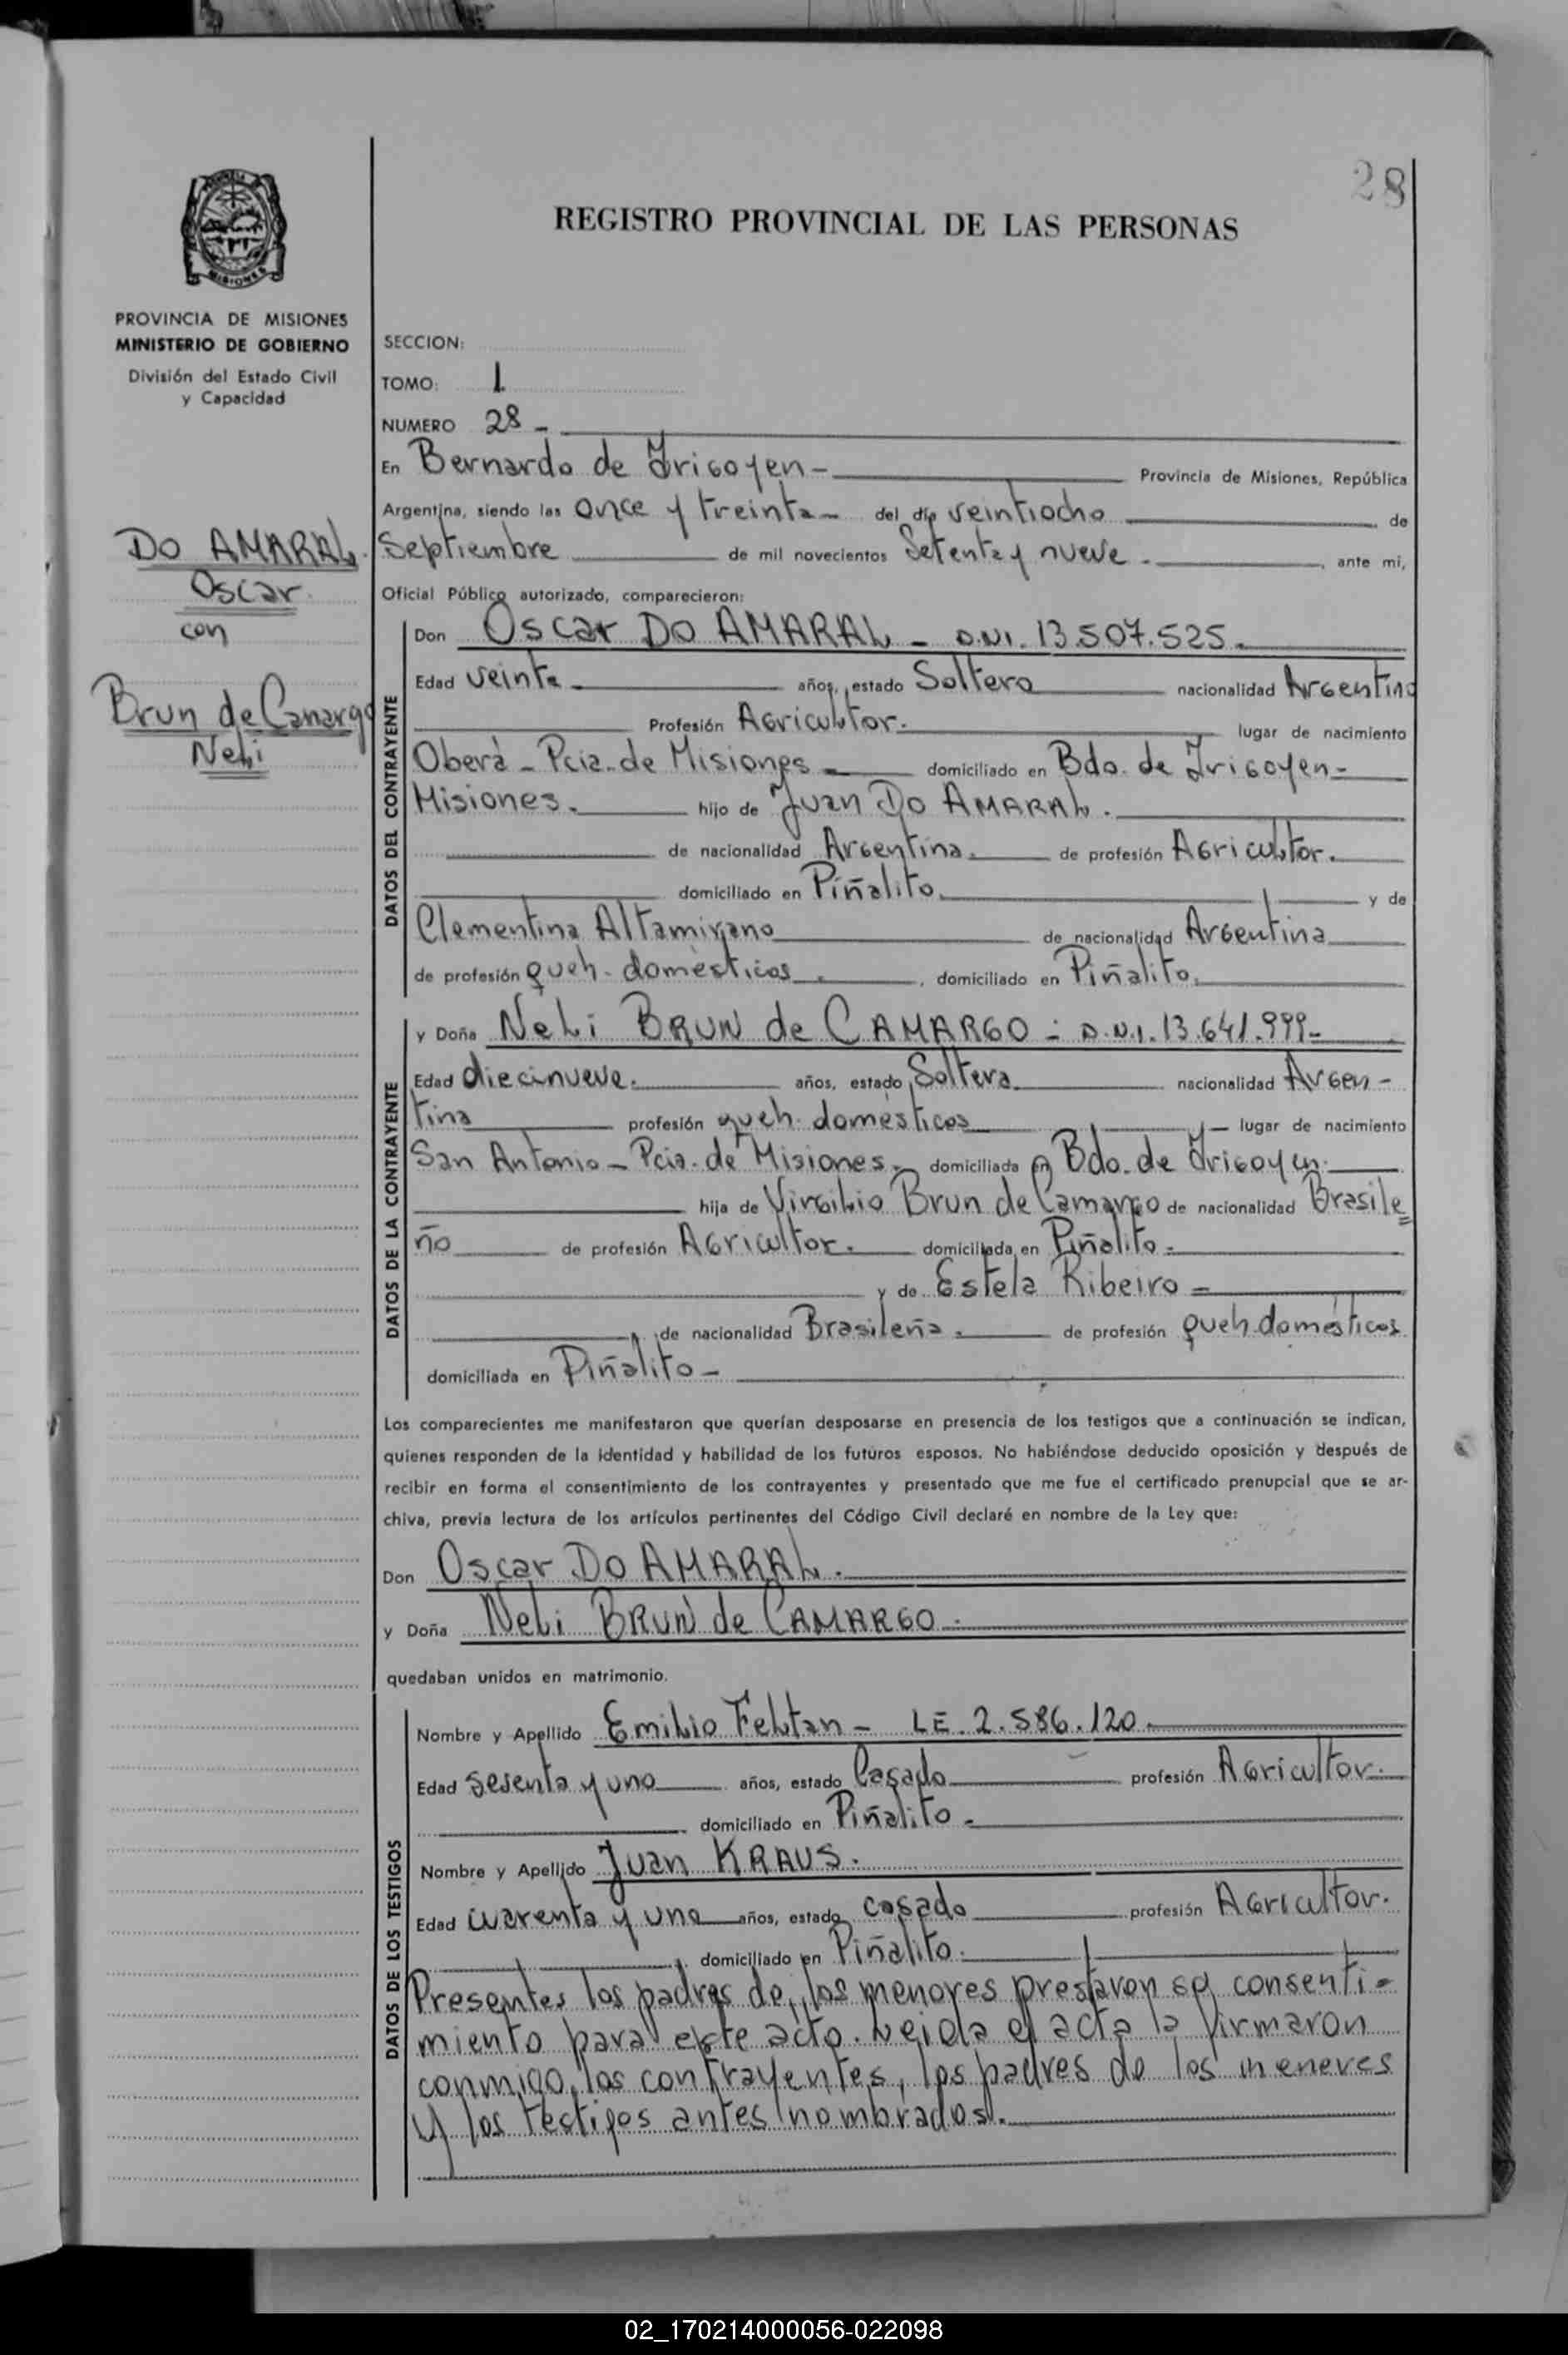 28
REGISTRO PROVINCIAL DE LAS PERSONAS
MISIONES
PROVINCIA DE MISIONES
MINISTERIO DE GOBIERNO
División del Estado Civil
y Capacidad
SECCION:
TOMO: 1
NUMERO 28 -
En Bernardo de Irigoyen - Provincia de Misiones, República
Argentina, siendo las once y treinta - del día veintiocho de
Septiembre de mil novecientos Setenta y nueve - , ante mí,
Oficial Público autorizado, comparecieron:
DO AMARAL
Oscar
con
Brun de Camargo
Neli
DATOS DEL CONTRAYENTE
Don Oscar DO AMARAL - D.N.I. 13.507.525.
Edad veinte años, estado Soltero nacionalidad Argentino
Profesión Agricultor. lugar de nacimiento
Oberá - Pcia. de Misiones - domiciliado en Bdo. de Irigoyen -
Misiones. hijo de Juan DO AMARAL.
de nacionalidad Argentina. de profesión Agricultor.
domiciliado en Piñalito. y de
Clementina Altamirano de nacionalidad Argentina
de profesión queh. domésticos. , domiciliado en Piñalito.
DATOS DE LA CONTRAYENTE
y Doña Neli BRUN de CAMARGO - D.N.I. 13.641.999 -
Edad diecinueve. años, estado Soltera nacionalidad Argen -
tina profesión queh. domésticos lugar de nacimiento
San Antonio - Pcia. de Misiones. domiciliada en Bdo. de Irigoyen.
hija de Virgilio Brun de Camargo de nacionalidad Brasile=
ño de profesión Agricultor. domiciliada en Piñalito -
y de Estela Ribeiro -
de nacionalidad Brasileña. de profesión queh. domésticos
domiciliada en Piñalito -
Los comparecientes me manifestaron que querían desposarse en presencia de los testigos que a continuación se indican,
quienes responden de la identidad y habilidad de los futuros esposos. No habiéndose deducido oposición y después de
recibir en forma el consentimiento de los contrayentes y presentado que me fue el certificado prenupcial que se ar-
chiva, previa lectura de los artículos pertinentes del Código Civil declaré en nombre de la Ley que:
Don Oscar DO AMARAL.
y Doña Neli BRUN de CAMARGO -
quedaban unidos en matrimonio.
DATOS DE LOS TESTIGOS
Nombre y Apellido Emilio Feltan - LE. 2.586.120.
Edad sesenta y uno años, estado Casado profesión Agricultor.
domiciliado en Piñalito -
Nombre y Apellido Juan KRAUS.
Edad cuarenta y uno años, estado casado profesión Agricultor.
domiciliado en Piñalito.
Presentes los padres de los menores prestaron su consenti=
miento para este acto. Leida el acta la firmaron
conmigo, los contrayentes, los padres de los menores
y los testigos antes nombrados.
02_170214000056-022098